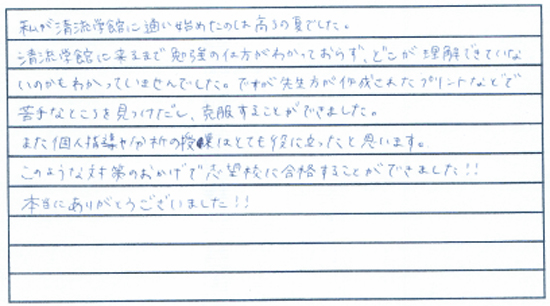 私が清流学館に通い始めたのは高3の夏でした。
清流学館に来るまで勉強の仕方がわかっておらず、どこが理解できていな
いのかもわかっていませんでした。ですが先生方が作成されたプリントなどで
苦手なところを見つけだし、克服することができました。
また個人指導や分析の授業はとても役に立ったと思います。
このような対策のおかげで志望校に合格することができました!!
本当にありがとうございました!!